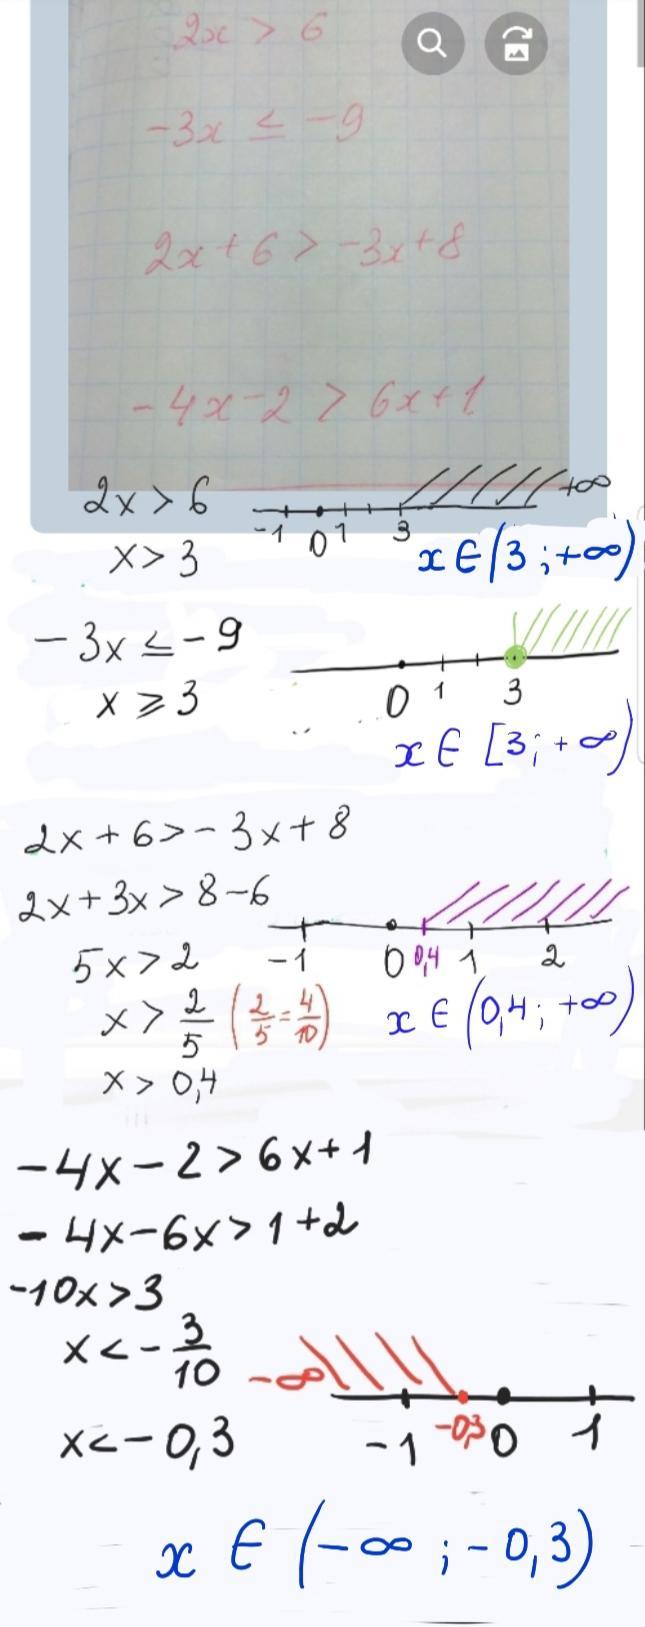 2x > 6
-3x ≤ -9
2x + 6 > -3x + 8
-4x - 2 > 6x + 1
2x > 6
x > 3
-1 0 1 3 +∞
x ∈ (3 ; +∞)
-3x ≤ -9
x ⩾ 3
0 1 3
x ∈ [3 ; +∞)
2x + 6 > -3x + 8
2x + 3x > 8 - 6
5x > 2
x > 2/5 (2/5 = 4/10)
x > 0,4
-1 0 0,4 1 2
x ∈ (0,4 ; +∞)
-4x - 2 > 6x + 1
-4x - 6x > 1 + 2
-10x > 3
x < -3/10
x < -0,3
-∞ -1 -0,3 0 1
x ∈ (-∞ ; -0,3)